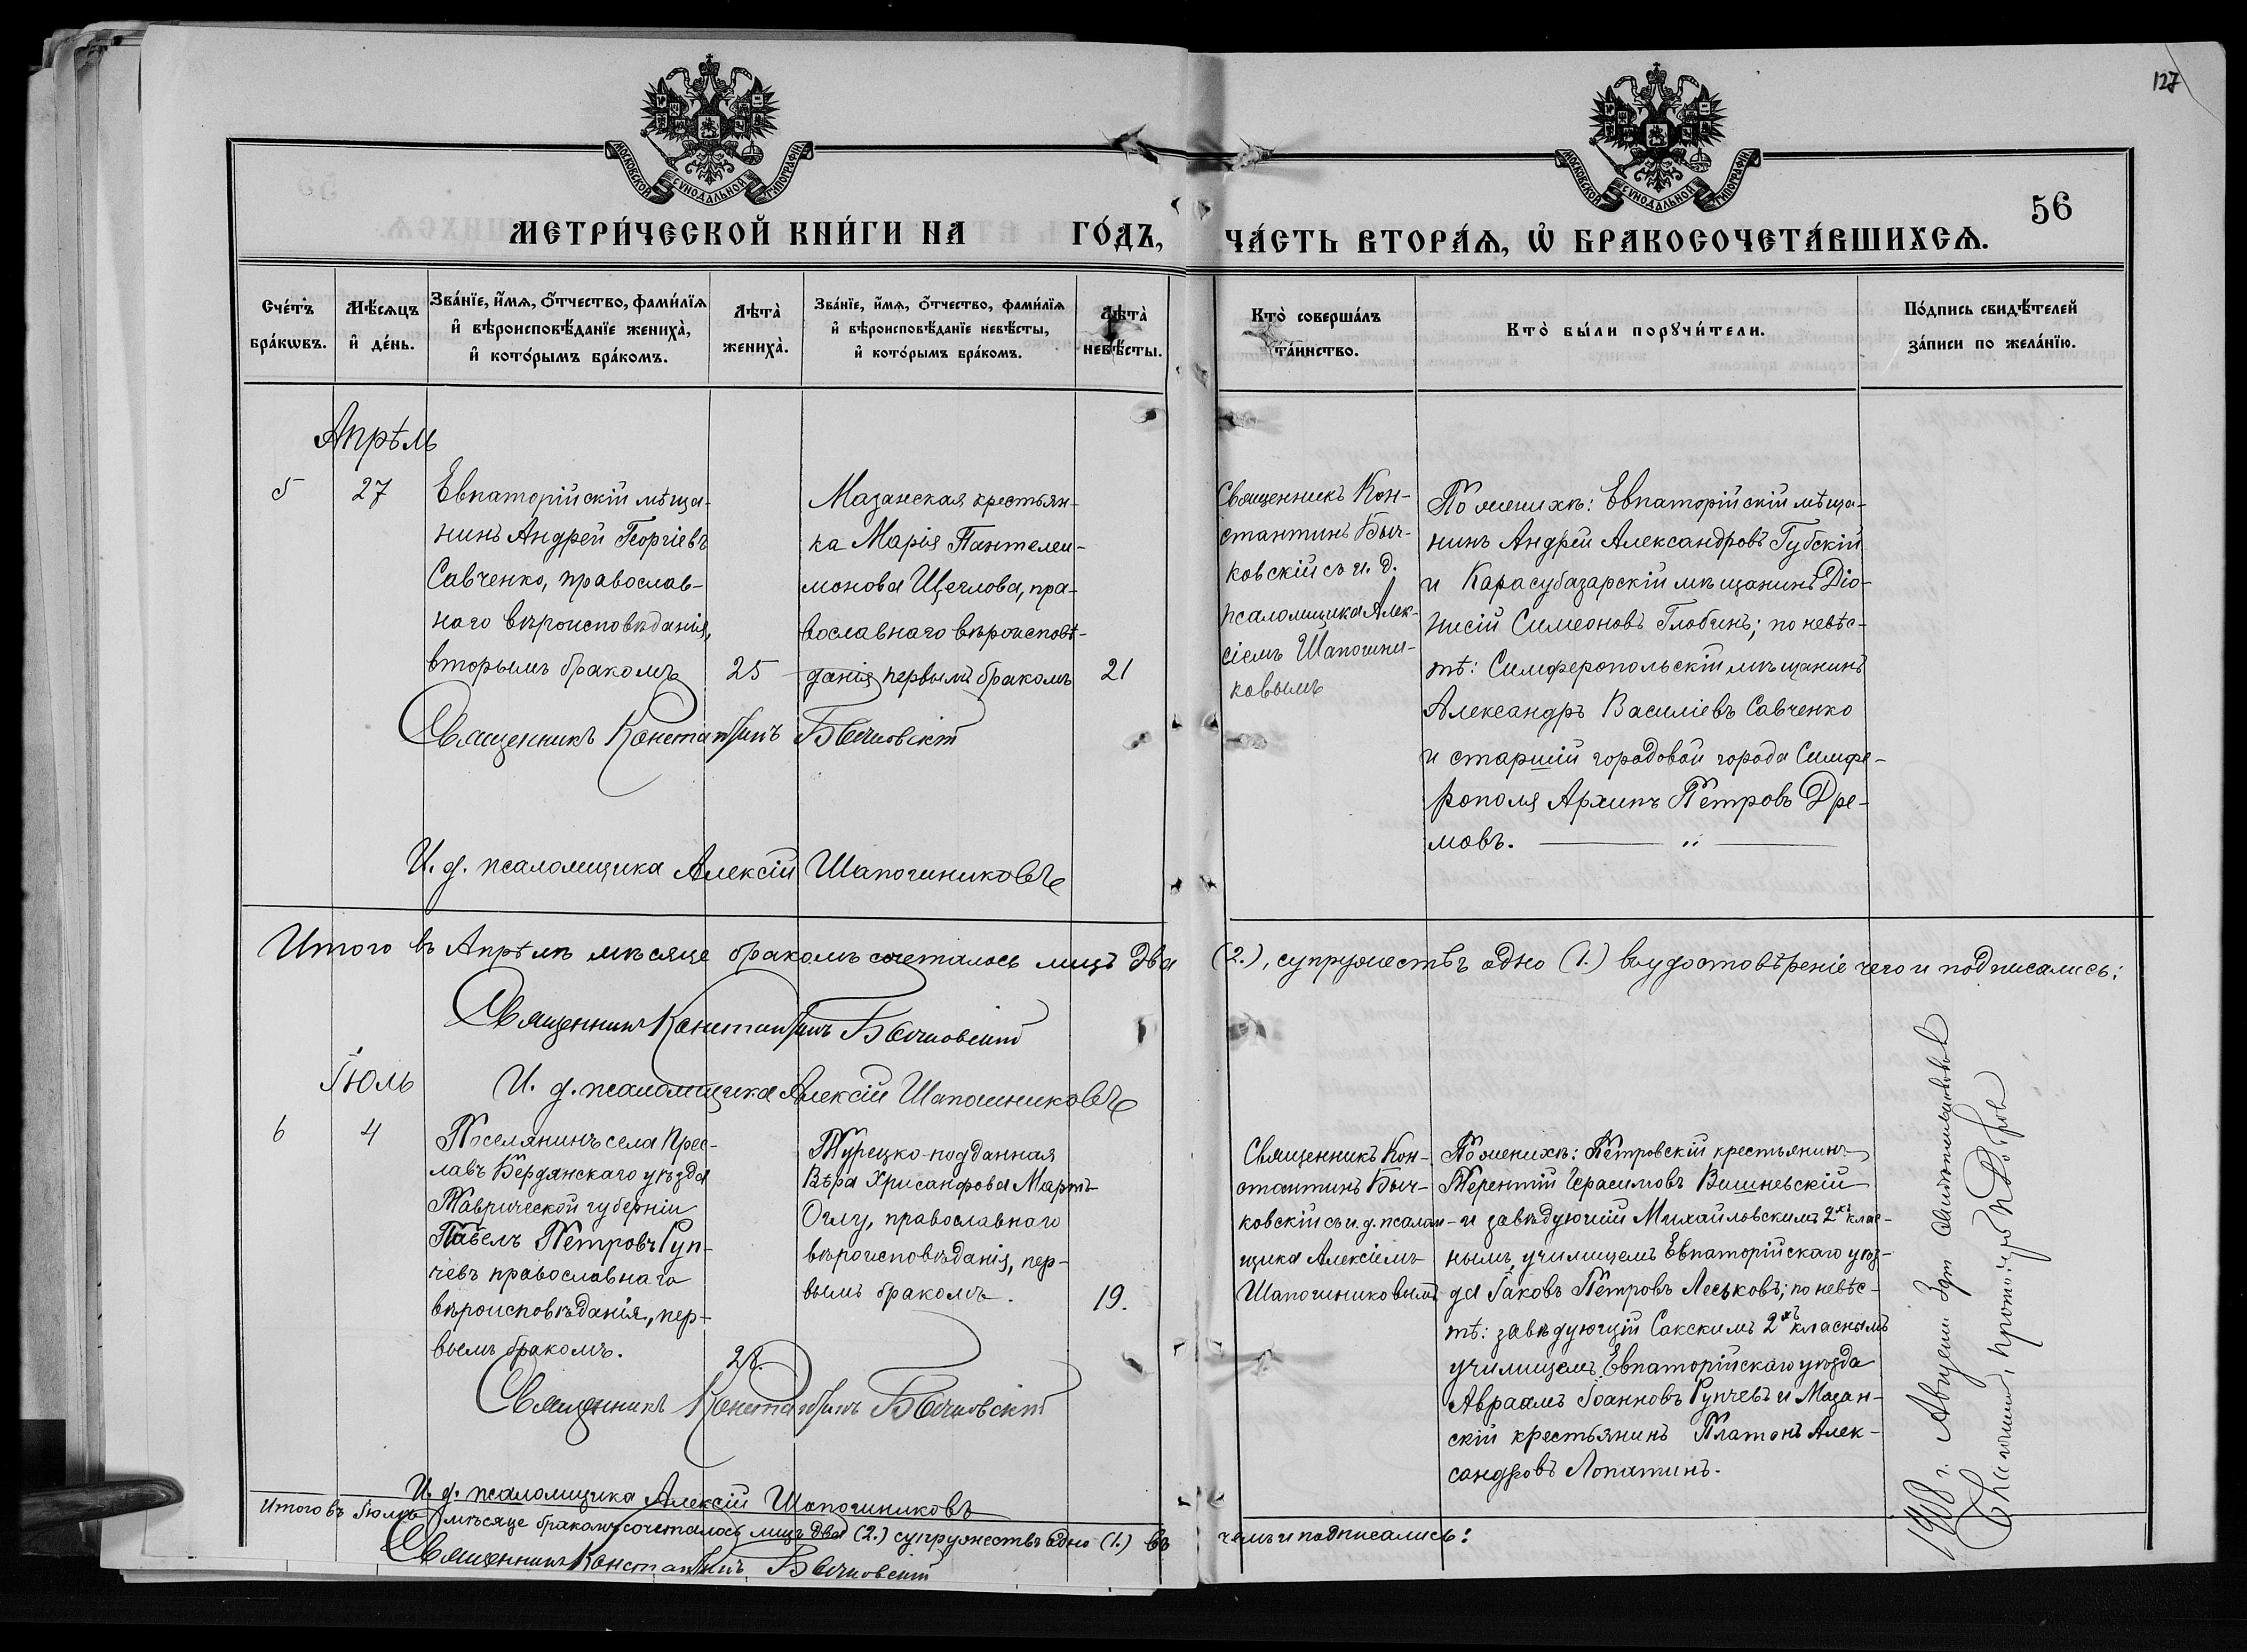 127
МОСКОВСКОЙ СѴНОДАЛЬНОЙ ТИПОГРАФІИ
МОСКОВСКОЙ СѴНОДАЛЬНОЙ ТИПОГРАФІИ
56
МЕТРИ́ЧЕСКОЙ КНИ́ГИ НА ГО́ДЪ,
ЧА́СТЬ ВТОРА́Ѧ, Ѽ БРАКОСОЧЕТА́ВШИХСѦ.
Сче́тъ
бра́кѡвъ.
Мѣ́сѧцъ
и҆ де́нь.
Зва́нїе, и҆́мѧ, ѻ҆́тчество, фами́лїѧ
и҆ вѣроисповѣ́данїе жениха̀,
и҆ кото́рымъ бра́комъ.
Лѣта̀
жениха̀.
Зва́нїе, и҆́мѧ, ѻ҆́тчество, фами́лїѧ
и҆ вѣроисповѣ́данїе невѣ́сты,
и҆ кото́рымъ бра́комъ.
Лѣта̀
невѣ́сты.
Кто̀ соверша́лъ
та́инство.
Кто̀ бы́ли порꙋчи́тели.
По́дпись свидѣ́телей
за́писи по жела́нїю.
Апрѣль
5
27
Евпаторійскій мѣща-
нинъ Андрей Георгіевъ
Савченко, православ-
наго вѣроисповѣданія,
вторымъ бракомъ
25
Мазанская крестьян-
ка Марія Пантелеи-
монова Щеглова, пра-
вославнаго вѣроисповѣ-
данія первымъ бракомъ
21
Священникъ Кон-
стантинъ Быч-
ковскій съ и. д.
псаломщика Алек-
сіемъ Шапошни-
ковымъ
По женихѣ: Евпаторійскій мѣща-
нинъ Андрей Александровъ Губскій
и Карасубазарскій мѣщанинъ Діо-
нисій Симеоновъ Глобинъ; по невѣс-
тѣ: Симферопольскій мѣщанинъ
Александръ Василіевъ Савченко
и старшій городовой города Симфе-
рополя Архипъ Петровъ Дре-
мовъ.
Священникъ Константинъ Бычковскій
И. д. псаломщика Алексій Шапошниковъ
Итого въ Апрѣлѣ мѣсяце бракомъ сочеталось лицъ два (2.), супружествъ одно (1.) въ удостовѣреніе чего и подписались:
Священникъ Константинъ Бычковскій
И. д. псаломщика Алексій Шапошниковъ
Іюль
6
4
Поселянинъ села Прес-
лавъ Бердянскаго уѣзда
Таврической губерніи
Павелъ Петровъ Руп-
чевъ православнаго
вѣроисповѣданія, пер-
вымъ бракомъ.
28.
Турецко-подданная
Вѣра Хрисанфова Мартъ-
Оглу, православнаго
вѣроисповѣданія, пер-
вымъ бракомъ.
19.
Священникъ Кон-
стантинъ Быч-
ковскій съ и. д. псалом-
щика Алексіемъ
Шапошниковымъ
По женихѣ: Петровскій крестьянинъ
Терентій Герасимовъ Вишневскій
и завѣдующій Михайловскимъ 2хъ клас-
нымъ училищемъ Евпаторійскаго уѣз-
да Іаковъ Петровъ Леськовъ; по невѣс-
тѣ: завѣдующій Сакскимъ 2хъ класнымъ
училищемъ Евпаторійскаго уѣзда
Авраамъ Іоанновъ Рупчевъ и Мазан-
скій крестьянинъ Платонъ Алек-
сандровъ Лопатинъ.
Священникъ Константинъ Бычковскій
И. д. псаломщика Алексій Шапошниковъ
Итого въ Іюлѣ мѣсяце бракомъ сочеталось лицъ два (2.) супружествъ одно (1.) въ чемъ и подписались:
Священникъ Константинъ Бычковскій
1908 г.